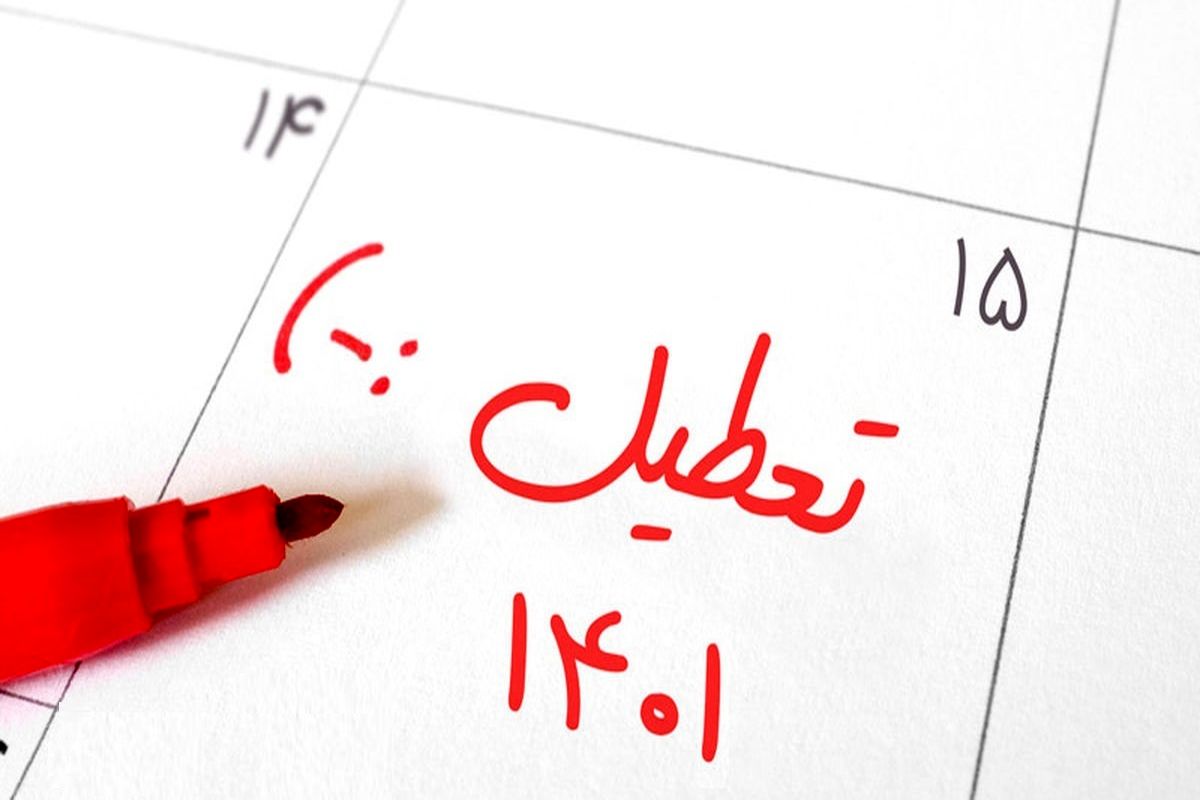 ۱۴
۱۵
تعطیل (-:
۱۴۰۱